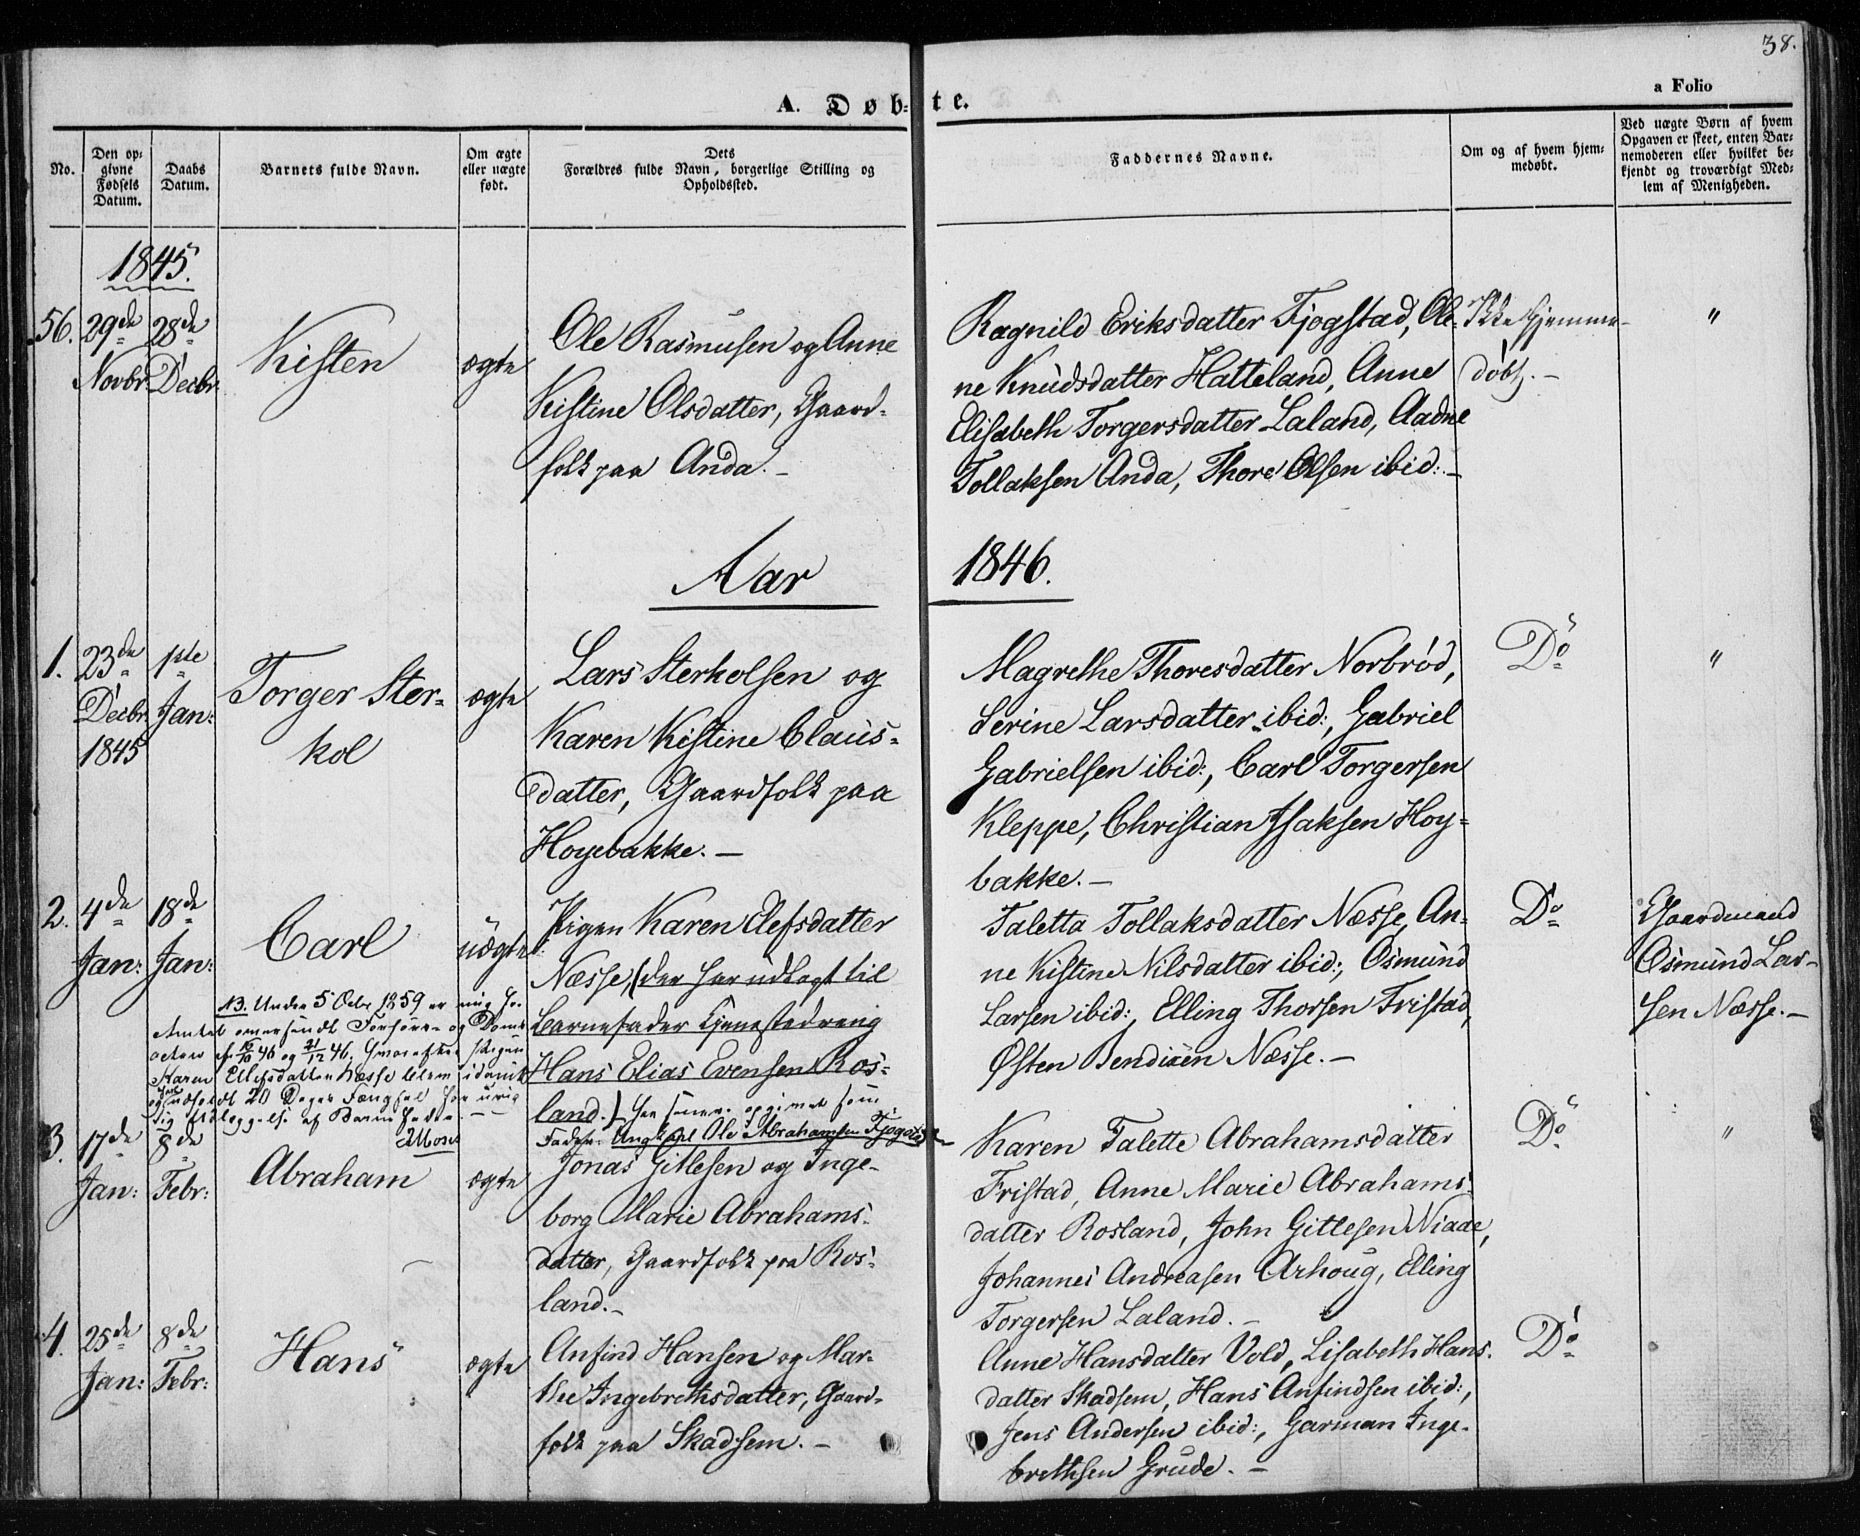 38.
a Folio
A. Døb-te.
No.
Den op-
givne
Fødsels
Datum.
Daabs
Datum.
Barnets fulde Navn.
Om ægte
eller uægte
født.
Dets
Forældres fulde Navn, borgerlige Stilling og
Opholdssted.
Faddernes Navne.
Om og af hvem hjem-
medøbt.
Ved uægte Børn af hvem
Opgaven er skeet, enten Bar-
nemoderen eller hvilket be-
kjendt og troværdigt Med-
lem af Menigheden.
1845.
56.
29de
Novbr:
28de
Decbr:
Kisten
ægte
Ole Rasmusen og Anne
Kistine Olsdatter, Gaard-
folk paa Anda. -
Ragnild Eriksdatter Fjogstad, Ole-
ne Knudsdatter Hatteland, Anne
Elisabeth Torgersdatter Laland, Aadne
Tollaksen Anda, Thore Olsen ibid:-
Ikke hjemme-
døbt. -
"
Aar 1846.
1.
23de
Decbr:
1845
1ste
Jan:
Torger Ster-
kol
ægte
Lars Sterkolsen og
Karen Kistine Claus-
datter, Gaardfolk paa
Hoyebakke. -
Magrethe Thoresdatter Norbrød,
Serine Larsdatter ibid:, Gabriel
Gabrielsen ibid:, Carl Torgersen
Kleppe, Christian Isaksen Hoy-
bakke. -
Do
"
2.
4de
Jan:
18de
Jan:
Carl
uægte
Pigen Karen Elefsdatter
Næsse, (der har udlagt til
Barnefader Tjenestedreng
Hans Elias Evensen Ros-
land.) Har senere opgivet som
Fader: Ungkarl Ole Abrahamsen Fjogstad
NB. Under 5 Octbr 1859 er mig fra
Amtet oversendt Forhørs- og Doms
acten af 16/10 46 og 21/12 46, hvorefter Pigen
Karen Ellefsdatter Næsse blev idømt
og har udholdt 20 Dages Fængsel for urig
tig Udlæggelse af Barnefader. -
Taletta Tollaksdatter Næsse, An-
ne Kistine Nilsdatter ibid:, Osmund
Larsen ibid:, Elling Thorsen Fristad,
Østen Bendixen Næsse. -
Do
Gaardmand
Osmund Lar-
sen Næsse. -
3.
17de
Jan:
8de
Febr:
Abraham
ægte
Jonas Gitlesen og Inge-
borg Marie Abrahams-
datter, Gaardfolk paa Ros-
land. -
Karen Talette Abrahamsdatter
Fristad, Anne Marie Abrahams-
datter Rosland, John Gitlesen Niaae,
Johannes Andreasen Arhoug, Elling
Torgersen Laland. -
Do
"
4.
25de
Jan:
8de
Febr:
Hans
ægte
Anfind Hansen og Mar-
the Ingebrethsdatter, Gaard-
folk paa Skadsem. -
Anne Hansdatter Vold, Lisabeth Hans-
datter Skadsem, Hans Anfindsen ibid:,
Jens Andersen ibid:, Garman Inge-
brethsen Grude. -
Do